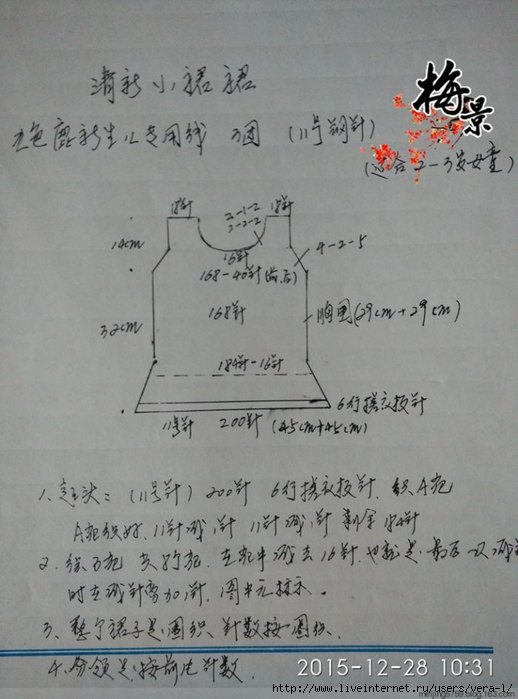 清新小裙裙
梅
景
九色鹿新生儿专用线 3团 (11号钢针)
(适合2-3岁女童)
18针
18针
2-1-2
2-2-2
14cm
16针
4-2-5
168-40针(前后)
168针
胸围(29cm+29cm)
32cm
184针-16针
6行搓衣板针
11号针 200针 (45cm+45cm)
1、起头:(11号针) 200针 6行搓衣板针. 织A花
A花织好, 11针减1针 11针减1针 剩余184针
2、织B花 减16针. 也就是最后一次减
时 加1针. 图中
3、整个裙子是圈织, 针数按一圈织.
4. 分领是按前片针数.
2015-12-28 10:31
http://www.liveinternet.ru/users/vera-l/